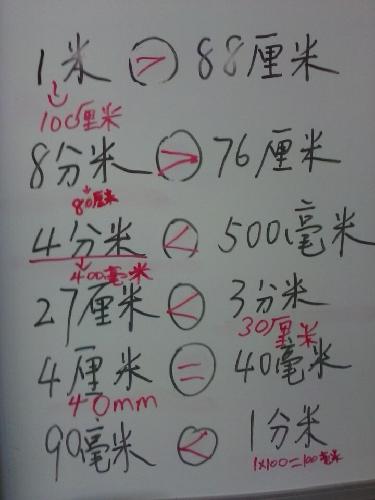 1米 > 88厘米
100厘米
8分米 > 76厘米
80厘米
4分米 < 500毫米
400毫米
27厘米 < 3分米
30厘米
4厘米 = 40毫米
40mm
90毫米 < 1分米
1×100=100毫米